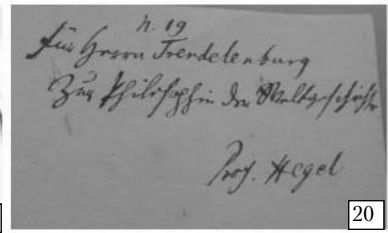 n. 19
für Herrn Trendelenburg
Zur Philosophie der Weltgeschichte
Prof. Hegel
20